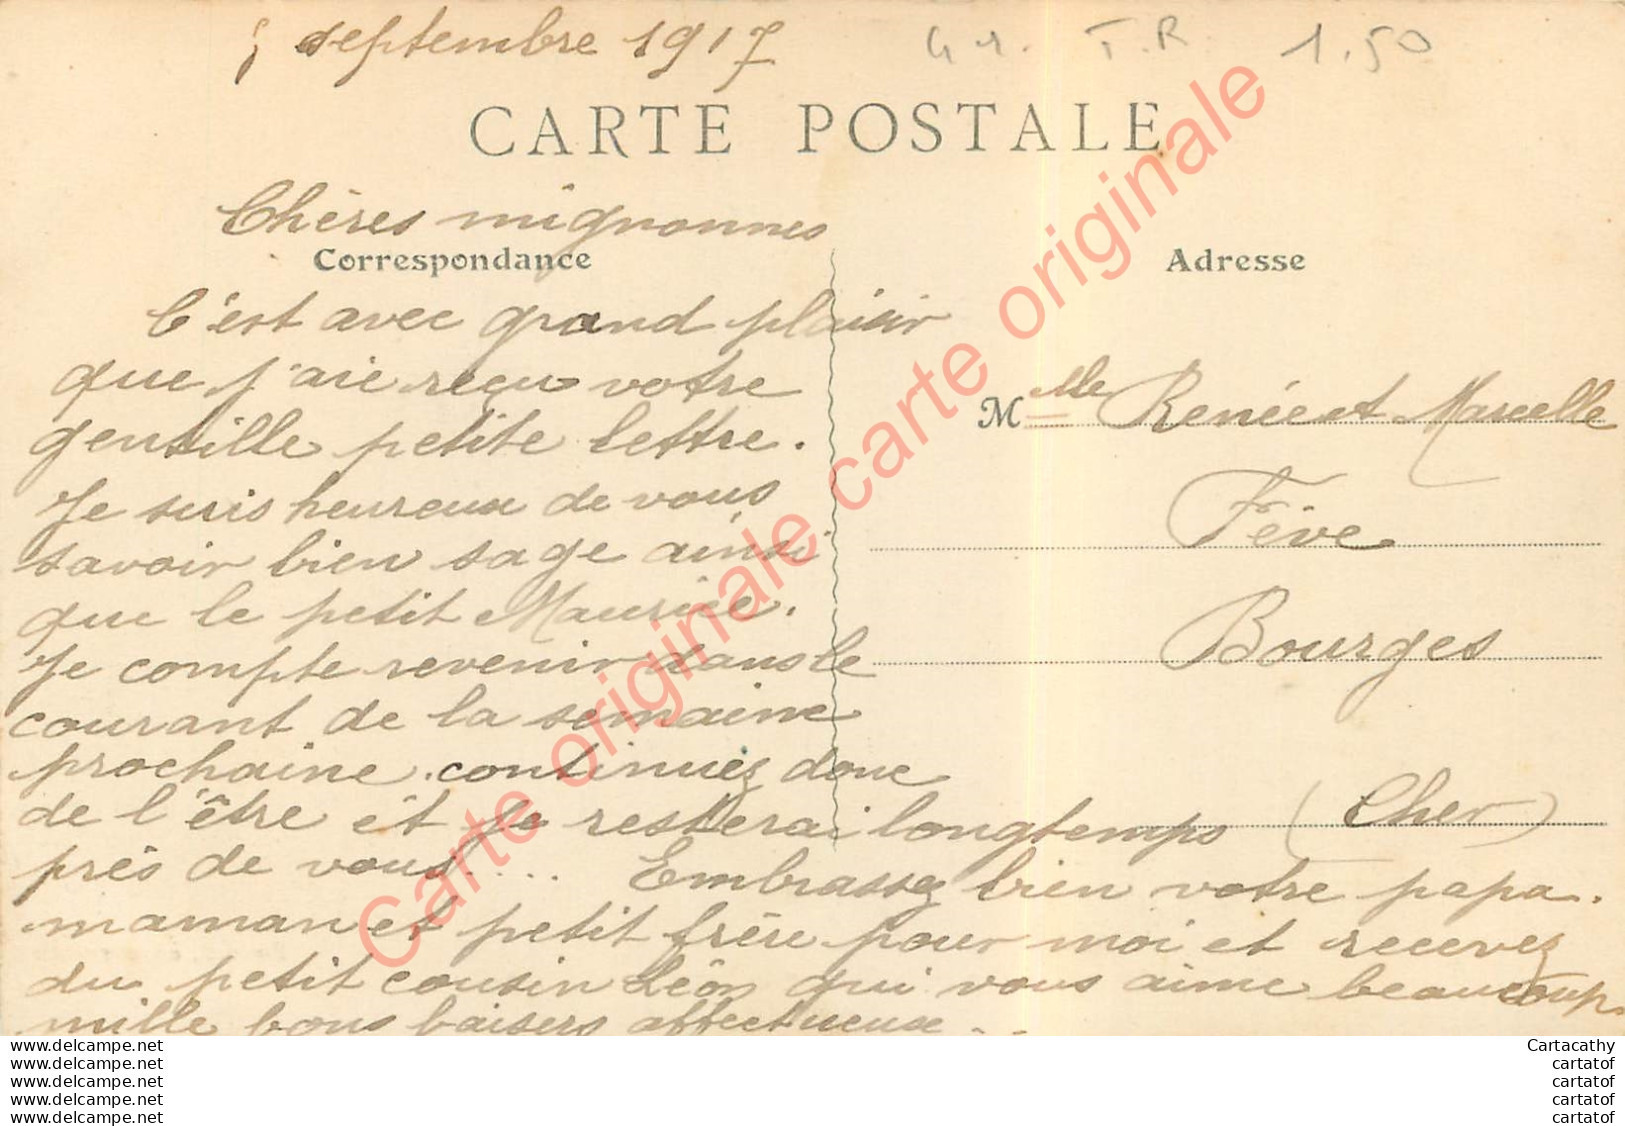 septembre 1917
T.R 1.50
CARTE POSTALE
Chères mignonnes
Correspondance
C'est avec grand plaisir
que j'aie reçu votre
gentille petite lettre.
Je suis heureux de vous
savoir bien sage ainsi
que le petit Maurice.
Je compte revenir dans le
courant de la semaine
prochaine. continuez donc
de l'être et je resterai longtemps
près de vous.... Embrassez bien votre papa.
maman et petit frère pour moi et recevez
du petit cousin Léon qui vous aime beaucoup
mille bons baisers affectueux...
Adresse
Mlle Renée et Marcelle
Fève
Bourges
(Cher)
Carte originale carte originale carte originale
www.delcampe.net Cartacathy
www.delcampe.net cartatof
www.delcampe.net cartatof
www.delcampe.net cartatof
www.delcampe.net cartatof